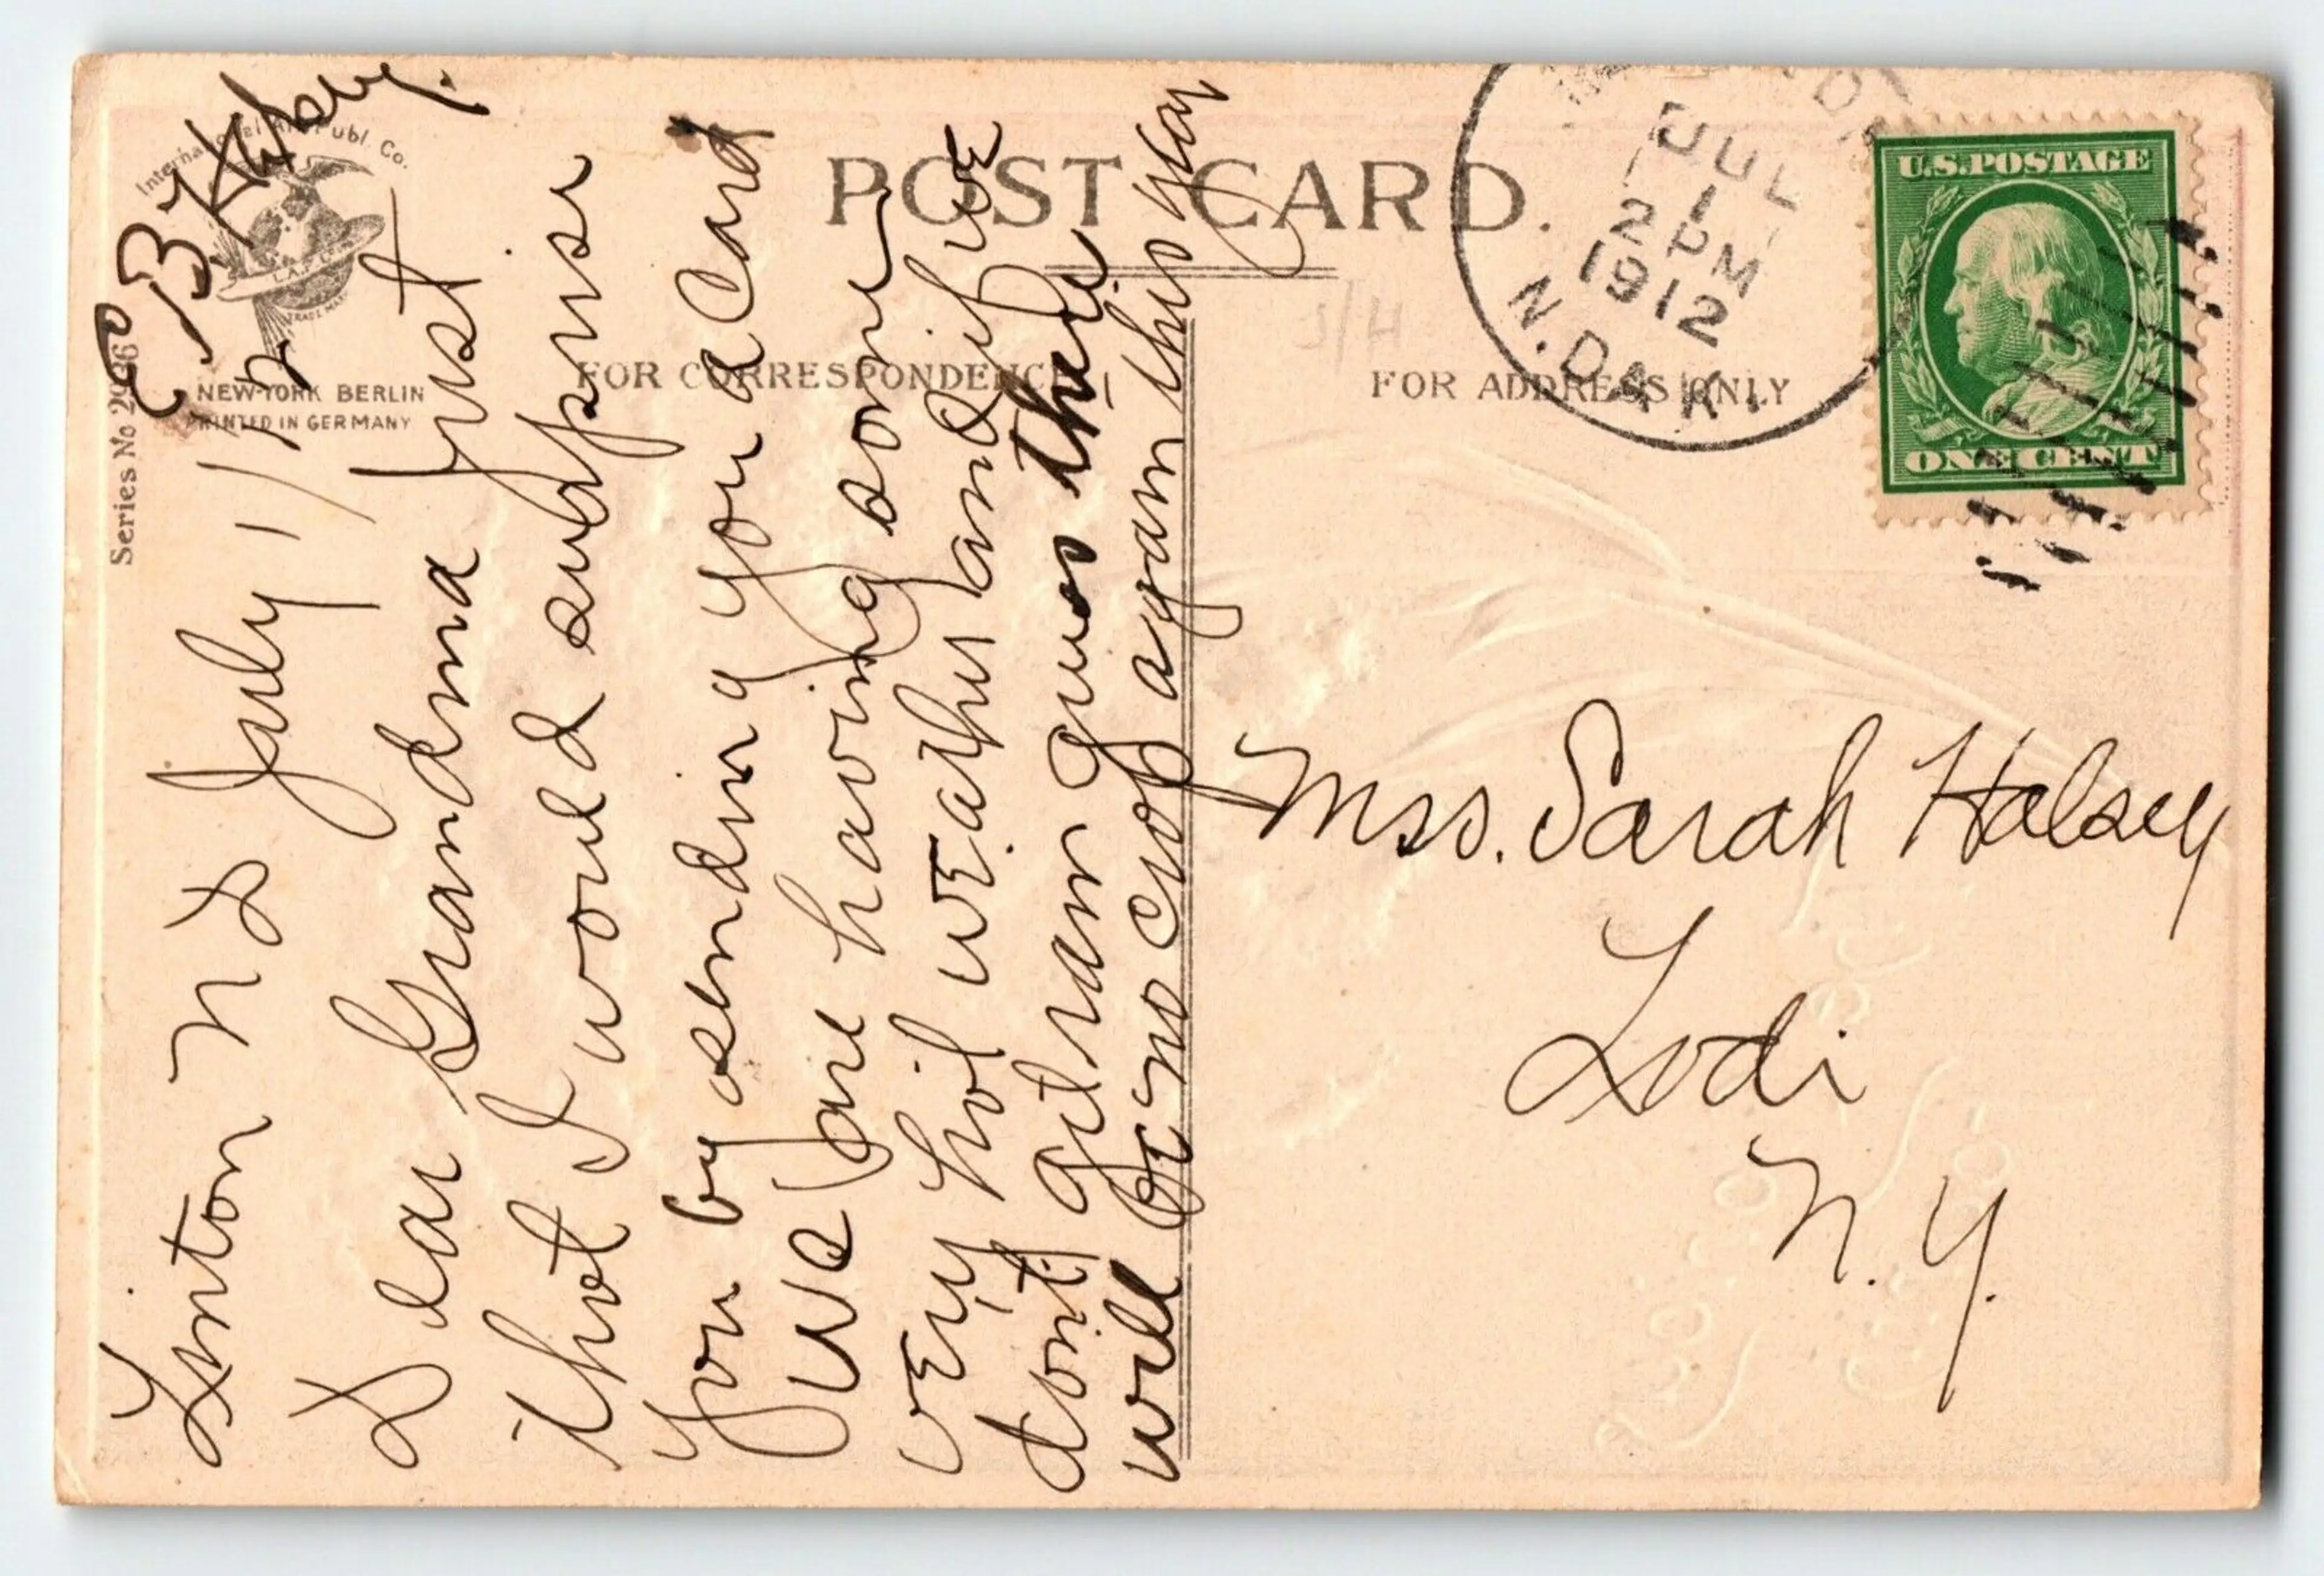 POST CARD.
FOR CORRESPONDENCE
FOR ADDRESS ONLY
International Art Publ. Co.
I.A.P. Co.
TRADE MARK
NEW-YORK BERLIN
PRINTED IN GERMANY
Series No 2936
Linton N D July 1/12
Dear Grandma Just
thot I would surprise
you by sending you a card
We are having some
very hot weather and if we
dont get rain guess there
will be no crop again this year
E B Halsey.
JUL
1
2 PM
1912
N. DAK.
U.S.POSTAGE
ONE CENT
S/H
Mrs. Sarah Halsey
Lodi
N.Y.